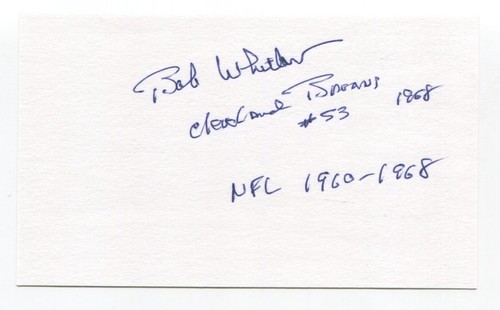 Bob Whitlow
Cleveland Browns 1968
#53
NFL 1960-1968